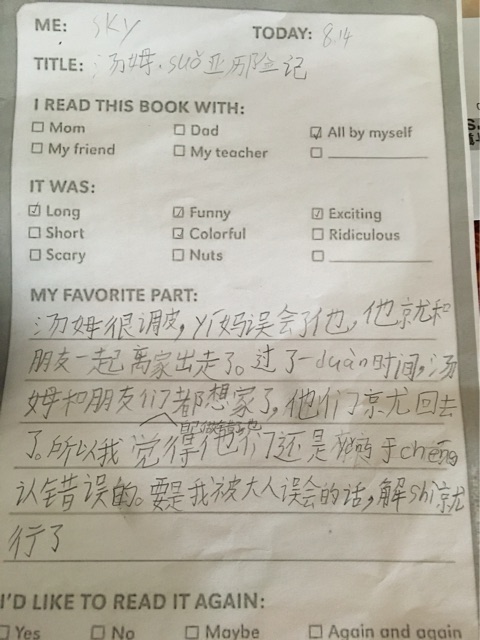 ME: SKY TODAY: 8.14
TITLE: 汤姆·suǒ亚历险记
I READ THIS BOOK WITH:
☐ Mom ☐ Dad ☑ All by myself
☐ My friend ☐ My teacher ☐
IT WAS:
☑ Long ☑ Funny ☑ Exciting
☐ Short ☑ Colorful ☐ Ridiculous
☐ Scary ☐ Nuts ☐
MY FAVORITE PART:
汤姆很调皮,yí妈误会了他,他就和
朋友一起离家出走了。过了一duàn时间,汤
姆和朋友们都想家了,他们就回去
了。所以我觉得他们还是 于chéng
认错误的。要是我被大人误会的话,解shì就
行了
I'D LIKE TO READ IT AGAIN:
☐ Yes ☐ No ☐ Maybe ☐ Again and again